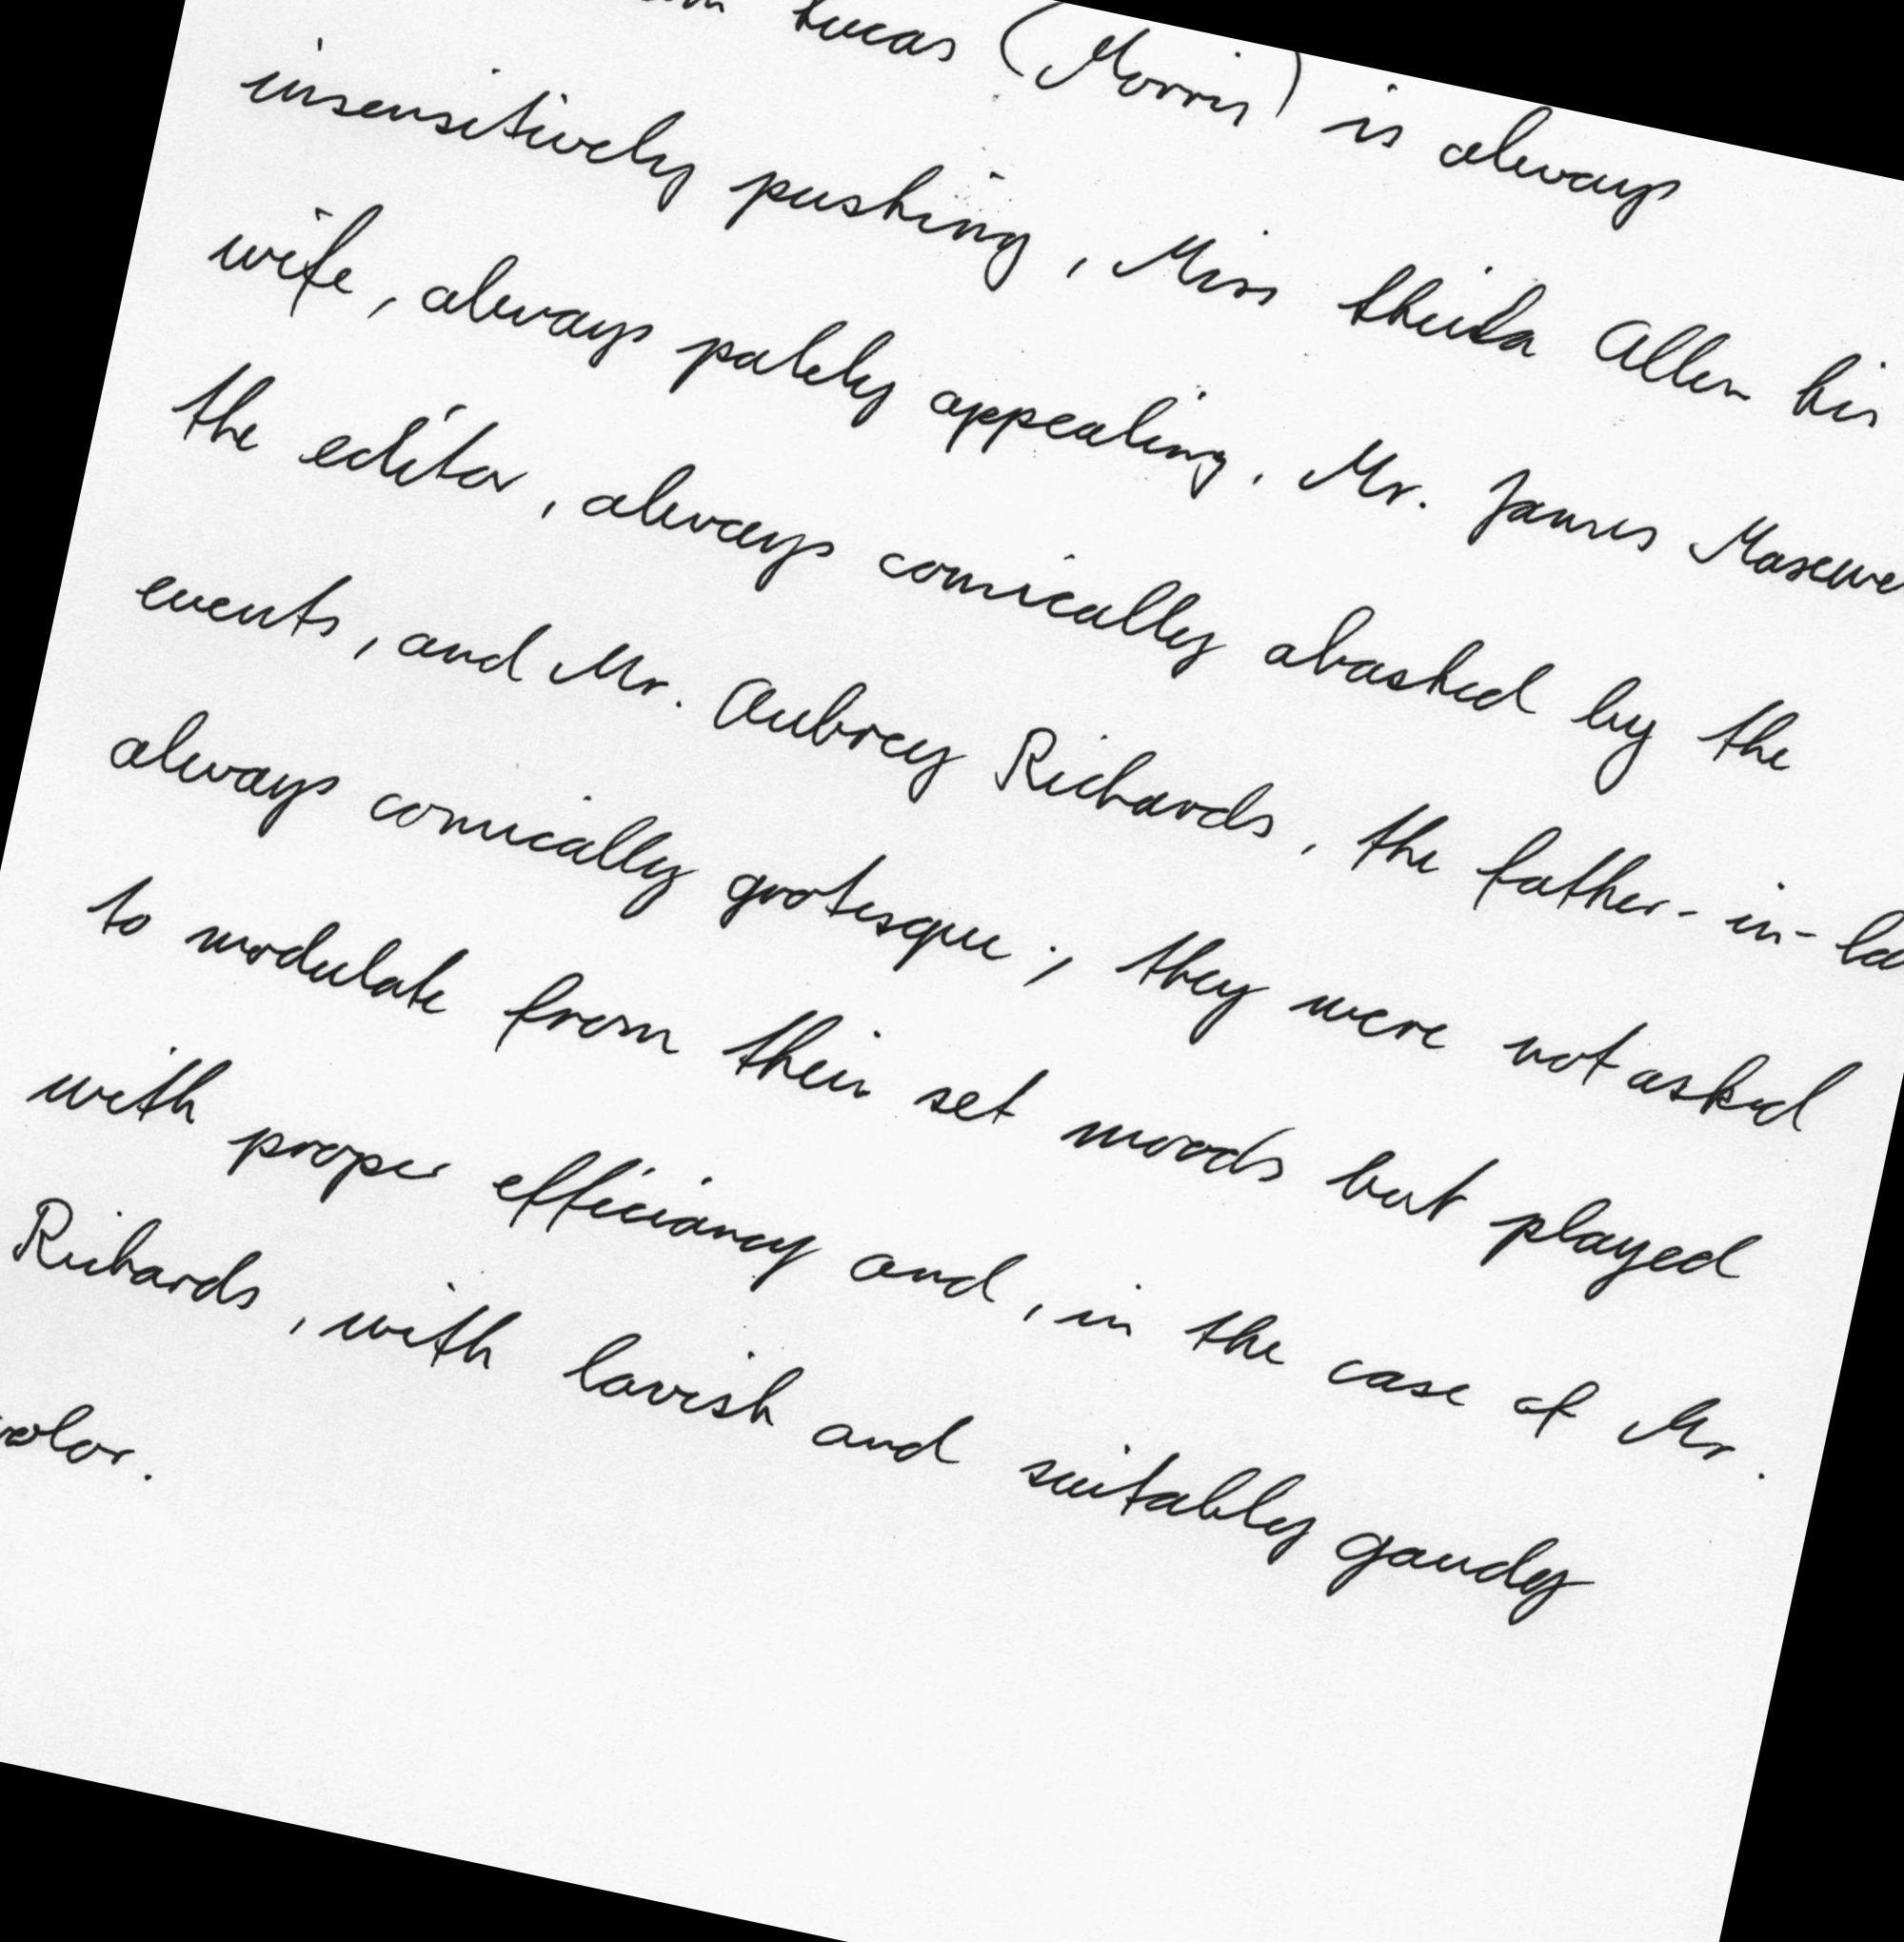 Lucas (Morris) is always
insensitively pushing, Miss Sheila Allen his
wife, always palely appealing, Mr. James
the editor, always comically abashed by the
events, and Mr. Aubrey Richards, the father-in-la
always comically grotesque; they were not asked
to modulate from their set moods but played
with proper efficiancy and, in the case of Mr.
Richards, with lavish and suitably gaudy
color.